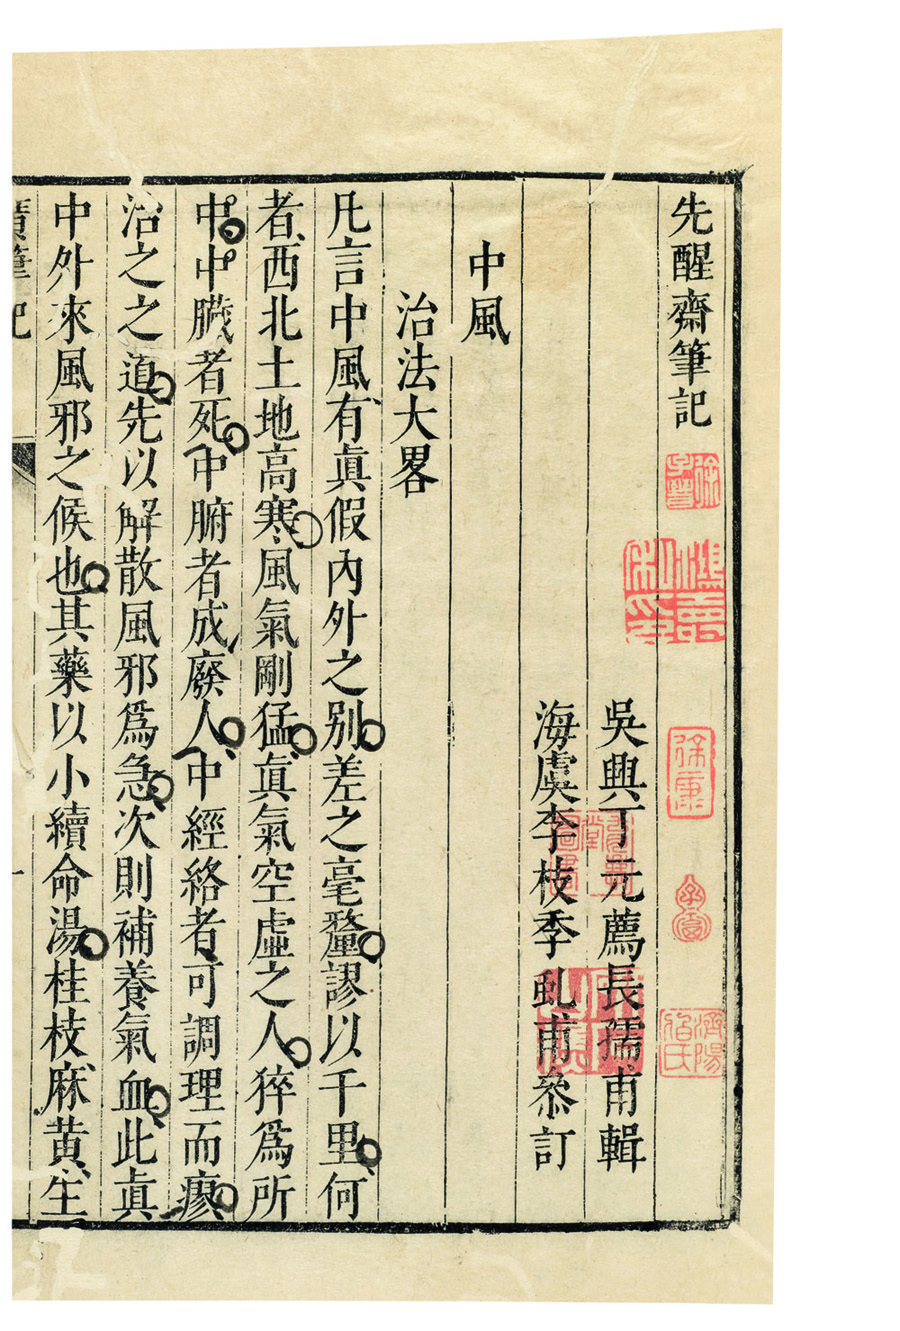 先醒齋筆記
吳興丁元薦長孺甫輯
海虞李枝季虬甫叅訂
中風
治法大畧
凡言中風有眞假內外之别差之毫釐謬以千里何
者西北土地高寒風氣剛猛眞氣空虛之人猝爲所
中中臟者死中腑者成廢人中經絡者可調理而瘳
治之之道先以解散風邪爲急次則補養氣血此眞
中外來風邪之候也其藥以小續命湯桂枝麻黃生
廣筆記
一
徐康
濟陽